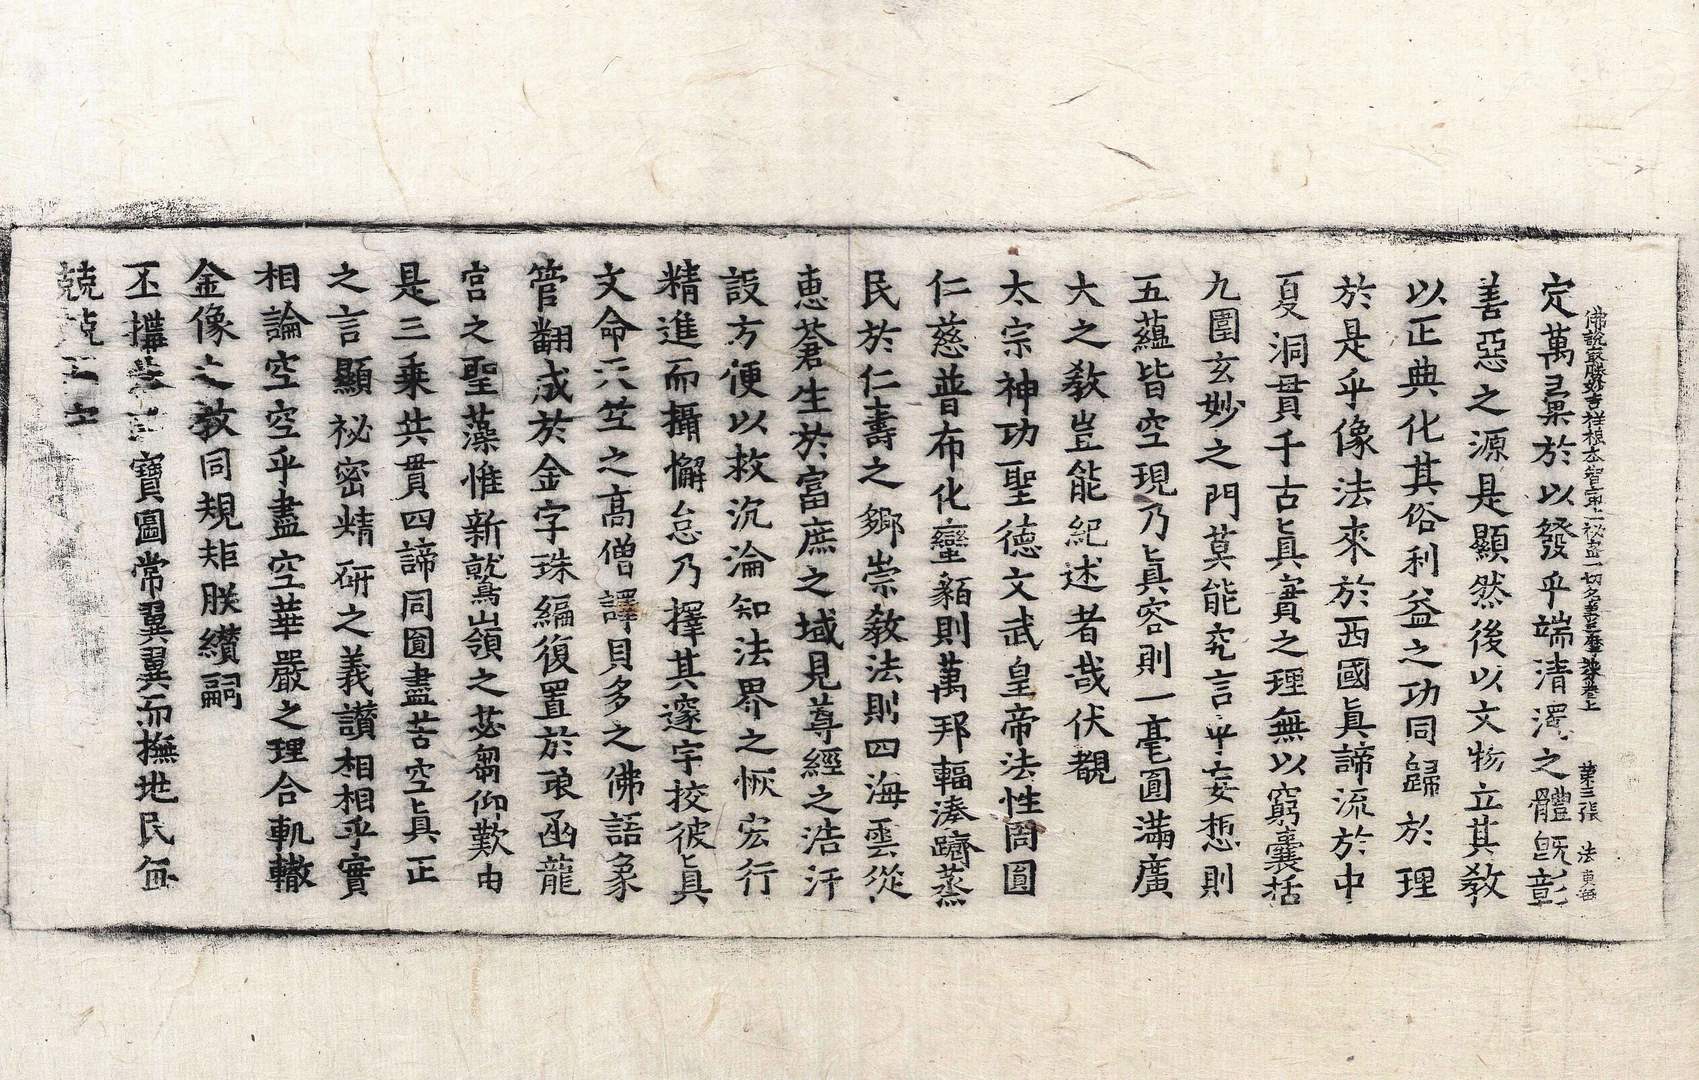 佛說最勝妙吉祥根本智最上秘密一切名義三摩地分卷上 第三張 法
定萬彙於以發乎端清濁之體旣彰
善惡之源是顯然後以文物立其敎
以正典化其俗利益之功同歸於理
於是乎像法來於西國眞諦流於中
夏洞貫千古眞實之理無以窮囊括
九圍玄妙之門莫能究言乎妄想則
五蘊皆空現乃眞容則一毫圓滿廣
大之敎豈能紀述者哉伏覩
太宗神功聖德文武皇帝法性周圓
仁慈普布化蠻貊則萬邦輻湊躋蒸
民於仁壽之鄉崇敎法則四海雲從
惠蒼生於富庶之域見尊經之浩汗
設方便以救沉淪知法界之恢宏行
精進而攝懈怠乃擇其邃宇挍彼眞
文命六竺之高僧譯貝多之佛語象
管翻成於金字珠編復置於琅函龍
宮之聖藻惟新鷲嶺之苾芻仰歎由
是三乘共貫四諦同圓盡苦空眞正
之言顯祕密精硏之義讚相相乎實
相論空空乎盡空華嚴之理合軌轍
金像之敎同規矩朕纘嗣
丕 寶圖常翼翼而撫地民每
兢兢